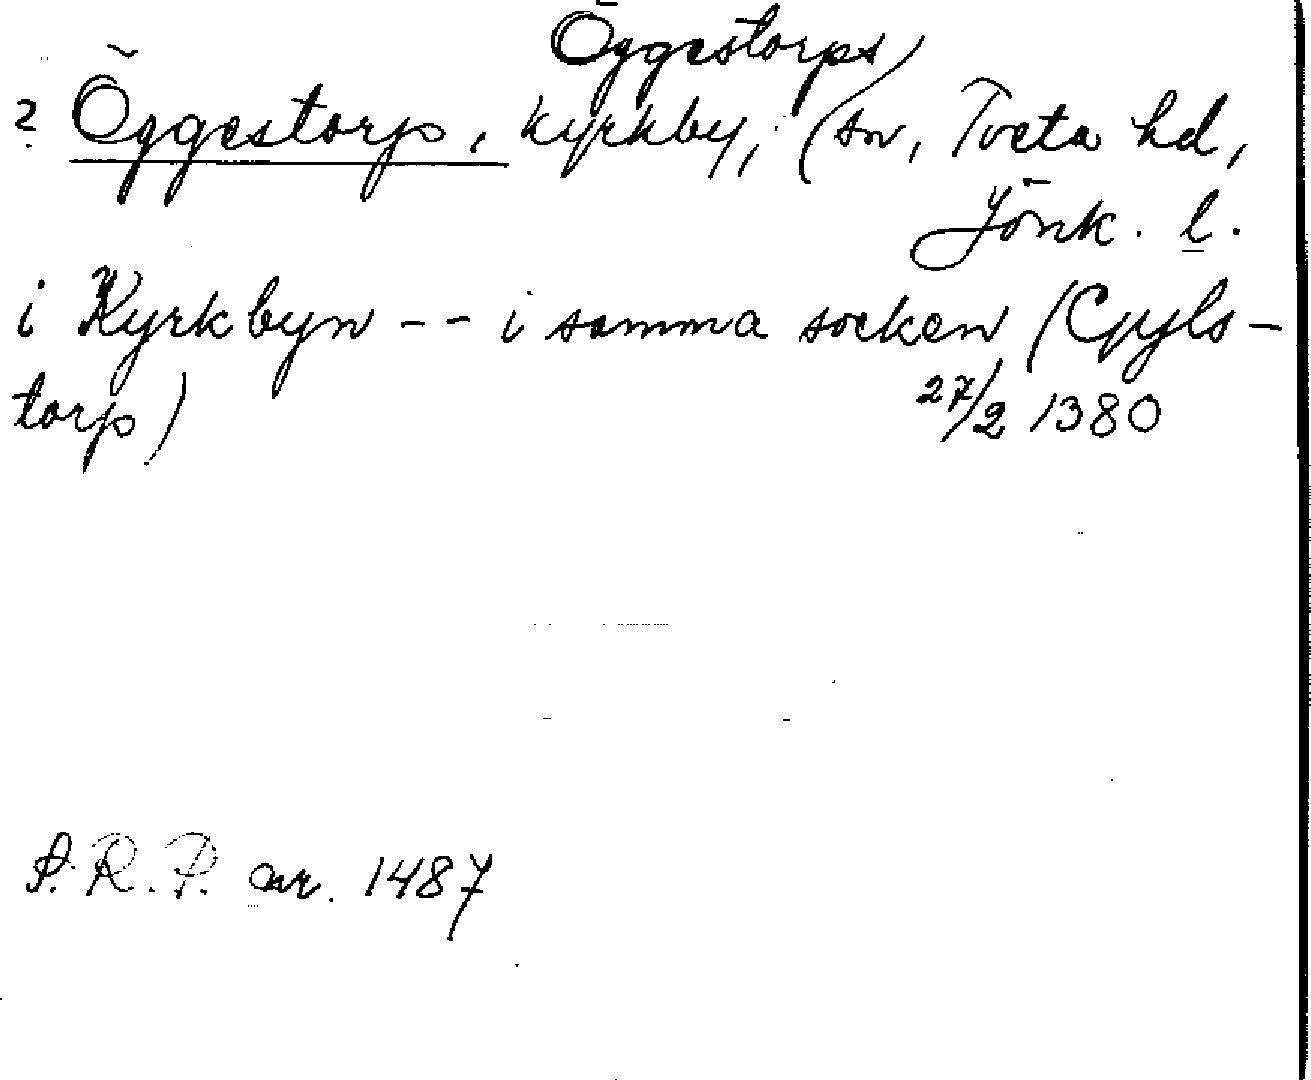 Öggestorps
? Öggestorp, kyrkby, (sn, Tveta hd,
Jönk. l.
i Kyrkbyn -- i samma socken (Gyls-
torp) 27/2 1380
P.R.P. nr. 1487